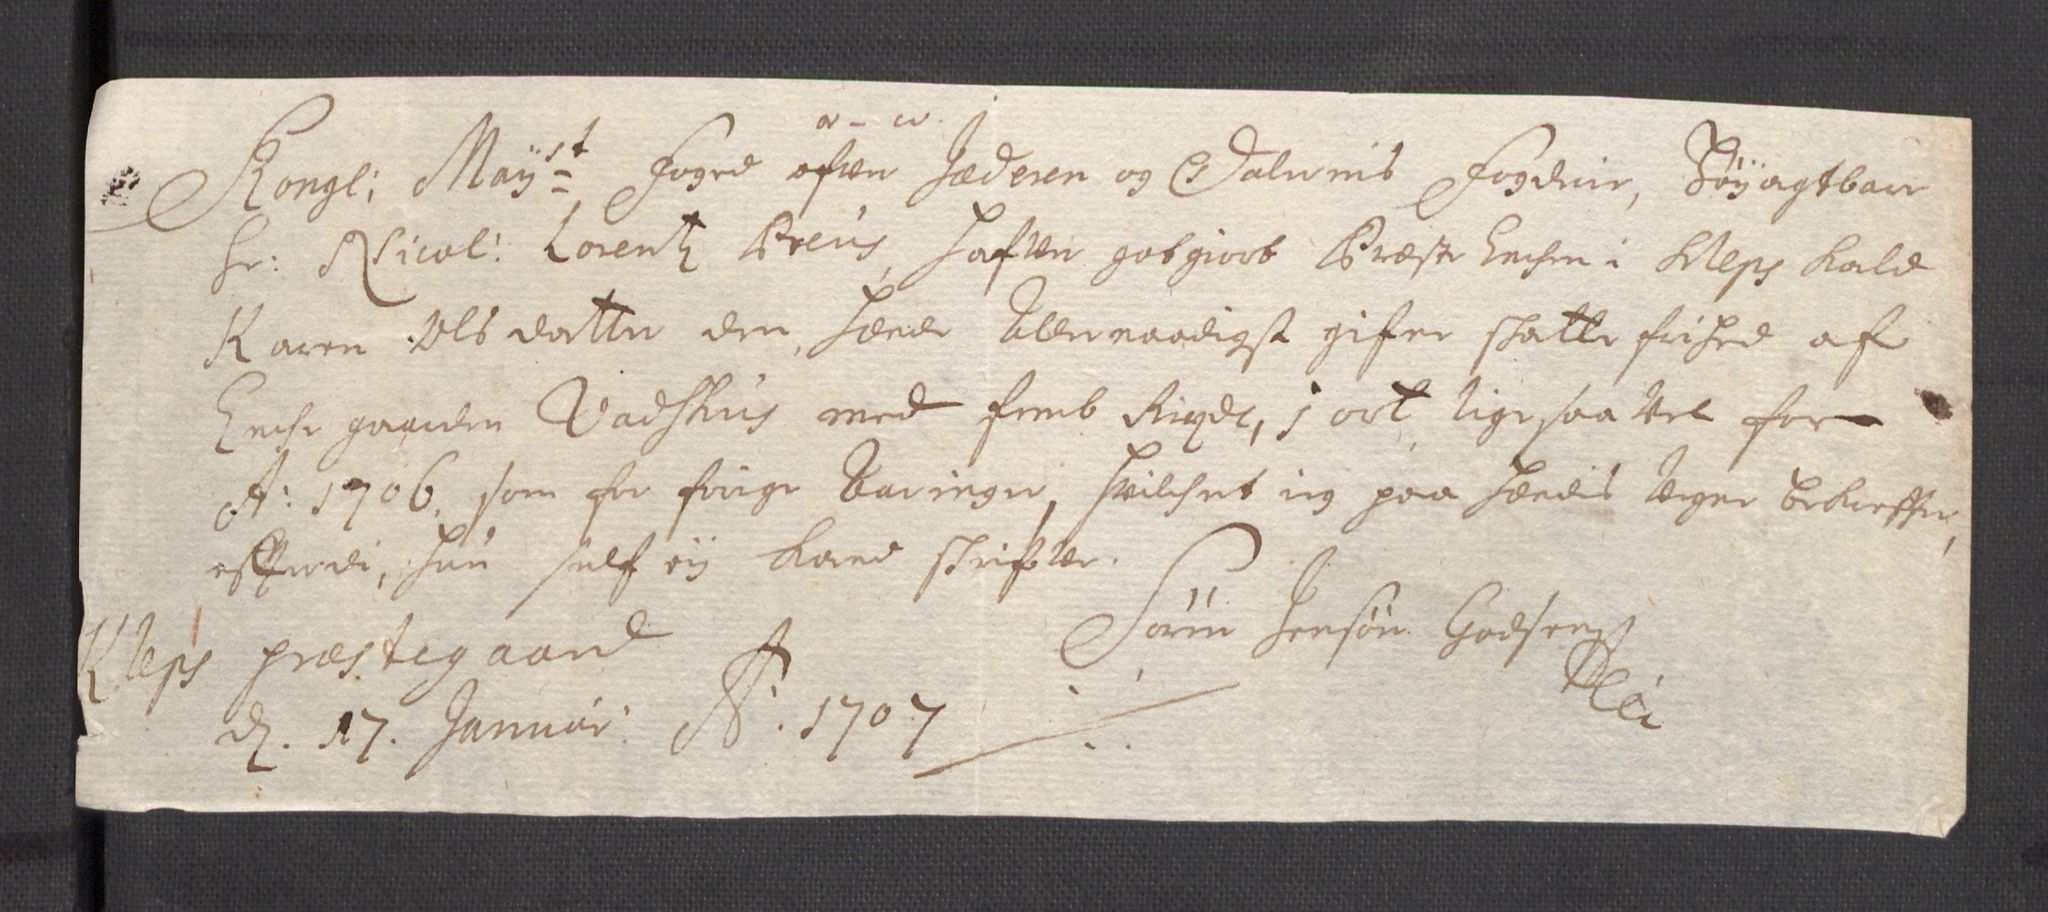 Kongl: Maÿst Foged ofver Jæderen og Dalernis Fogderie, Höÿagtbare
hr: Nicol: Lorentz Preus, hafver godgiort Præste Enchen i Kleps Kald
Karen Olsdatter den, hende Allernaadigst gifne skatte frihed af
Enche gaarden Vadshus med femb Rixdr, 1 ort, ligesaa vel for
A: 1706. som for forige Aaringer, hvilchet ieg paa hendis Vegne bekreffter,
effterdi, hun self eÿ kand skrifve.
Kleps præstegaard
d. 17. Januar: A: 1707
Sörin Jensön Godsen